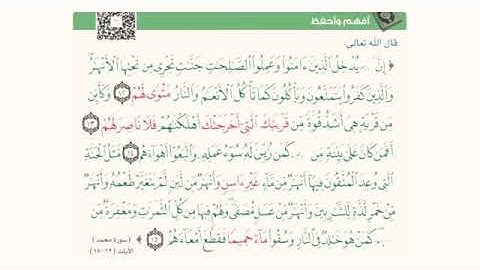 أفهم وأحفظ
قال الله تعالى:
﴿ إِنَّ يُدْخِلُ الَّذِينَ ءَامَنُوا وَعَمِلُوا الصَّالِحَاتِ جَنَّاتٍ تَجْرِي مِن تَحْتِهَا الْأَنْهَارُ
وَالَّذِينَ كَفَرُوا يَتَمَتَّعُونَ وَيَأْكُلُونَ كَمَا تَأْكُلُ الْأَنْعَامُ وَالنَّارُ مَثْوًى لَّهُمْ ١٢ وَكَأَيِّن
مِّن قَرْيَةٍ هِيَ أَشَدُّ قُوَّةً مِّن قَرْيَتِكَ الَّتِي أَخْرَجَتْكَ أَهْلَكْنَاهُمْ فَلَا نَاصِرَ لَهُمْ ١٣
أَفَمَن كَانَ عَلَى بَيِّنَةٍ مِّن كَمَن زُيِّنَ لَهُ سُوءُ عَمَلِهِ وَاتَّبَعُوا أَهْوَاءَهُم ١٤ مَّثَلُ الْجَنَّةِ
الَّتِي وُعِدَ الْمُتَّقُونَ فِيهَا أَنْهَارٌ مِّن مَّاءٍ غَيْرِ ءَاسِنٍ وَأَنْهَارٌ مِّن لَّبَنٍ لَّمْ يَتَغَيَّرْ طَعْمُهُ وَأَنْهَارٌ
مِّنْ خَمْرٍ لَّذَّةٍ لِّلشَّارِبِينَ وَأَنْهَارٌ مِّنْ عَسَلٍ مُّصَفًّى وَلَهُمْ فِيهَا مِن كُلِّ الثَّمَرَاتِ وَمَغْفِرَةٌ مِّن
كَمَنْ هُوَ خَالِدٌ فِي النَّارِ وَسُقُوا مَاءً حَمِيمًا فَقَطَّعَ أَمْعَاءَهُمْ ١٥ ﴾ (سورة محمد)
الآيات (١٢-١٥)